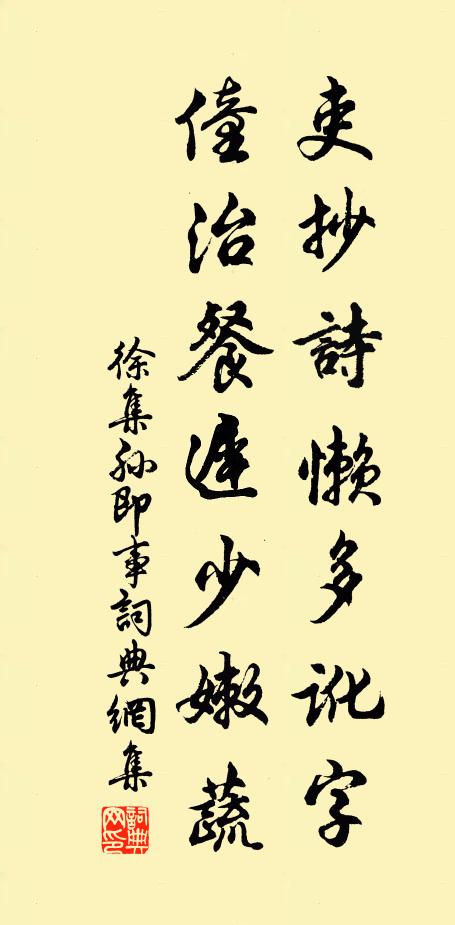 吏抄詩懶多訛字
僮治餐遲少嫩蔬
徐集孫即事詞典網集
詞典网印